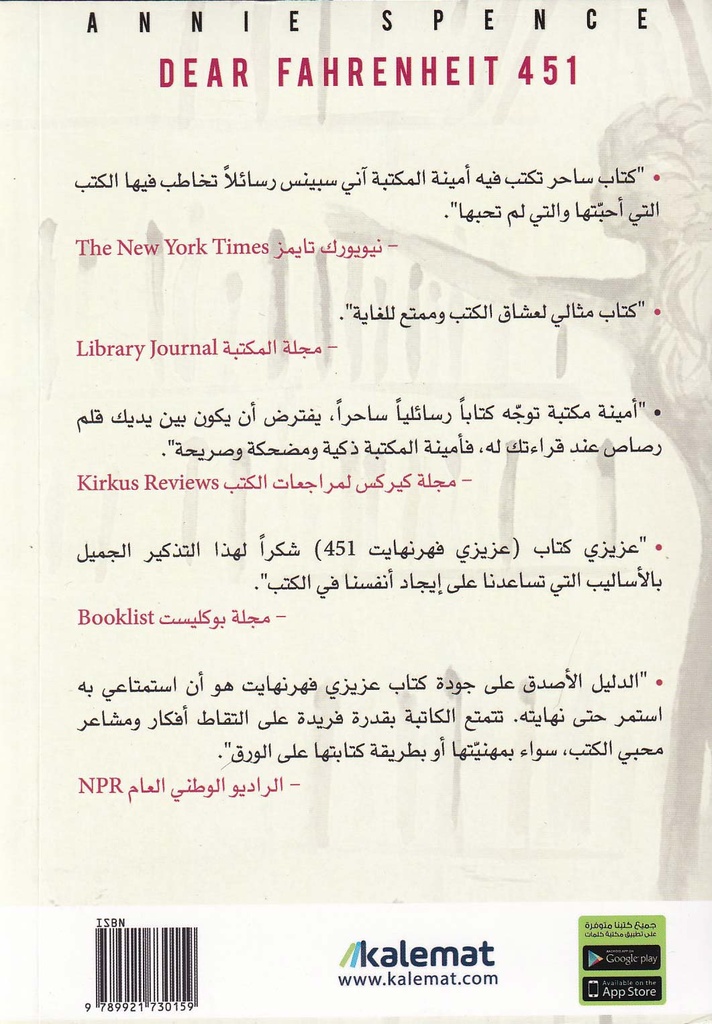 ANNIE SPENCE
DEAR FAHRENHEIT 451
• "كتاب ساحر تكتب فيه أمينة المكتبة آني سبينس رسائلاً تخاطب فيها الكتب
التي أحبّتها والتي لم تحبها".
– نيويورك تايمز The New York Times
• "كتاب مثالي لعشاق الكتب وممتع للغاية".
– مجلة المكتبة Library Journal
• "أمينة مكتبة توجّه كتاباً رسائلياً ساحراً، يفترض أن يكون بين يديك قلم
رصاص عند قراءتك له، فأمينة المكتبة ذكية ومضحكة وصريحة".
– مجلة كيركس لمراجعات الكتب Kirkus Reviews
• "عزيزي كتاب (عزيزي فهرنهايت 451) شكراً لهذا التذكير الجميل
بالأساليب التي تساعدنا على إيجاد أنفسنا في الكتب".
– مجلة بوكليست Booklist
• "الدليل الأصدق على جودة كتاب عزيزي فهرنهايت هو أن استمتاعي به
استمر حتى نهايته. تتمتع الكاتبة بقدرة فريدة على التقاط أفكار ومشاعر
محبي الكتب، سواء بمهنيّتها أو بطريقة كتابتها على الورق".
– الراديو الوطني العام NPR
ISBN
9 789921 730159
kalemat
www.kalemat.com
جميع كتبنا متوفرة
على تطبيق مكتبة كلمات
ANDROID APP ON
Google play
Available on the
App Store